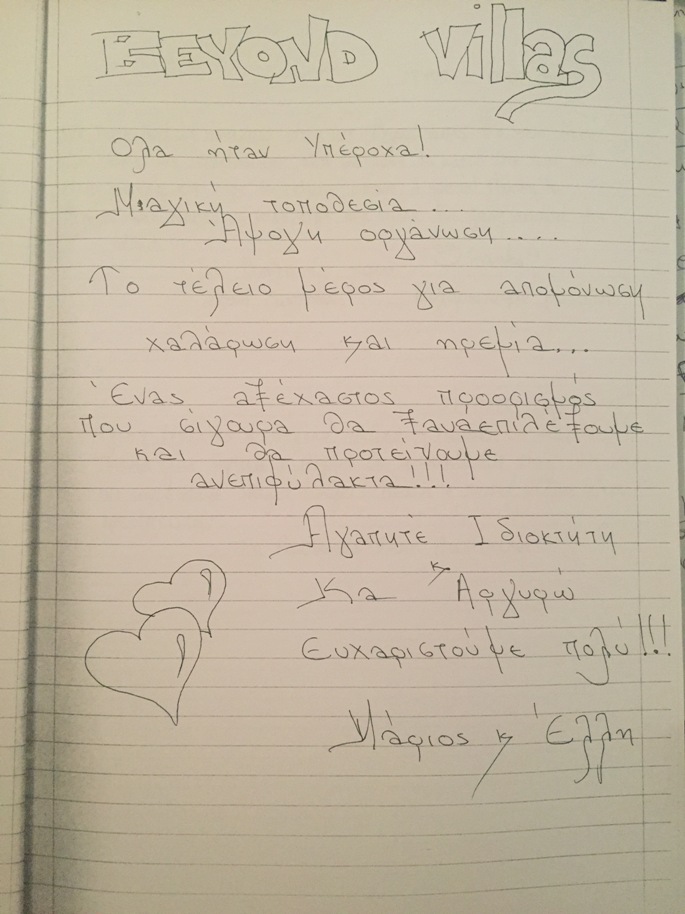 BEYOND Villas
Ολα ήταν Υπέροχα!
Μαγική τοποθεσία...
Άψογη οργάνωση....
Το τέλειο μέρος για απομόνωση
χαλάρωση και ηρεμία...
Ένας αξέχαστος προορισμός
που σίγουρα θα ξαναεπιλέξουμε
και θα προτείνουμε
ανεπιφύλακτα!!!
Αγαπητέ Ιδιοκτήτη
κ
Κα Αργυρώ
Ευχαριστούμε πολύ!!!
Μάριος κ Έλλη